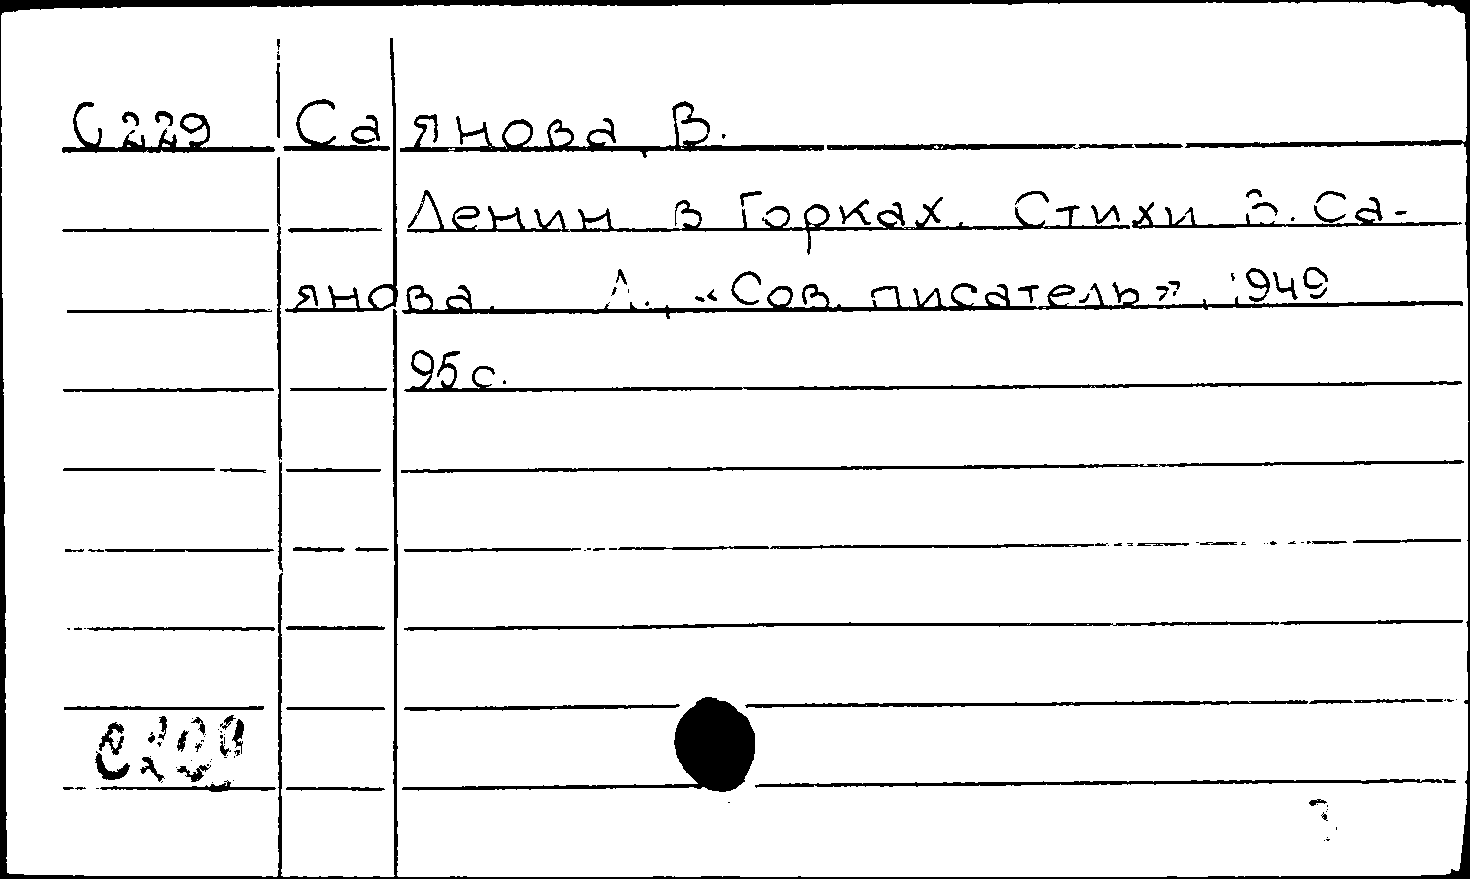 С229 Саянова, В.
Ленин в Горках. Стихи В. Са-
янова. Л., «Сов. писатель», 1949
95 с.
С229